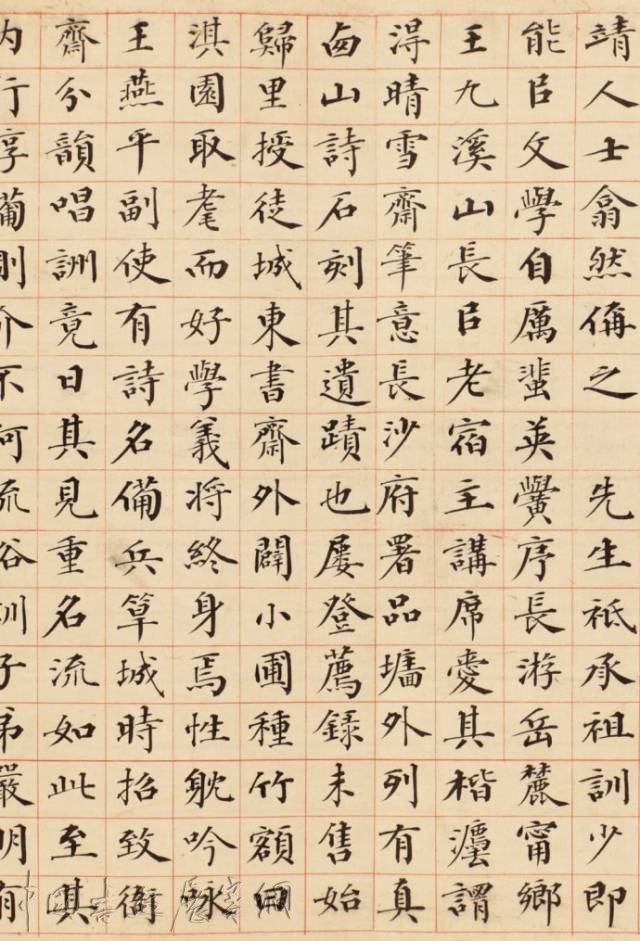 靖人士翕然偁之　先生祇承祖訓少即
能㠯文學自厲蜚英黌序長游岳麓甯鄉
王九溪山長㠯老宿主講席愛其楷灋謂
淂晴雪齋筆意長沙府署品墻外列有真
卥山詩石刻其遺蹟也屢登薦錄未售始
歸里授徒城東書齋外闢小圃種竹額曰
淇園取耄而好學義將終身焉性躭吟咏
王燕平副使有詩名備兵筸城時招致衙
齋分韻唱詶竟日其見重名流如此至其
内行則介不流俗訓子弟嚴明有